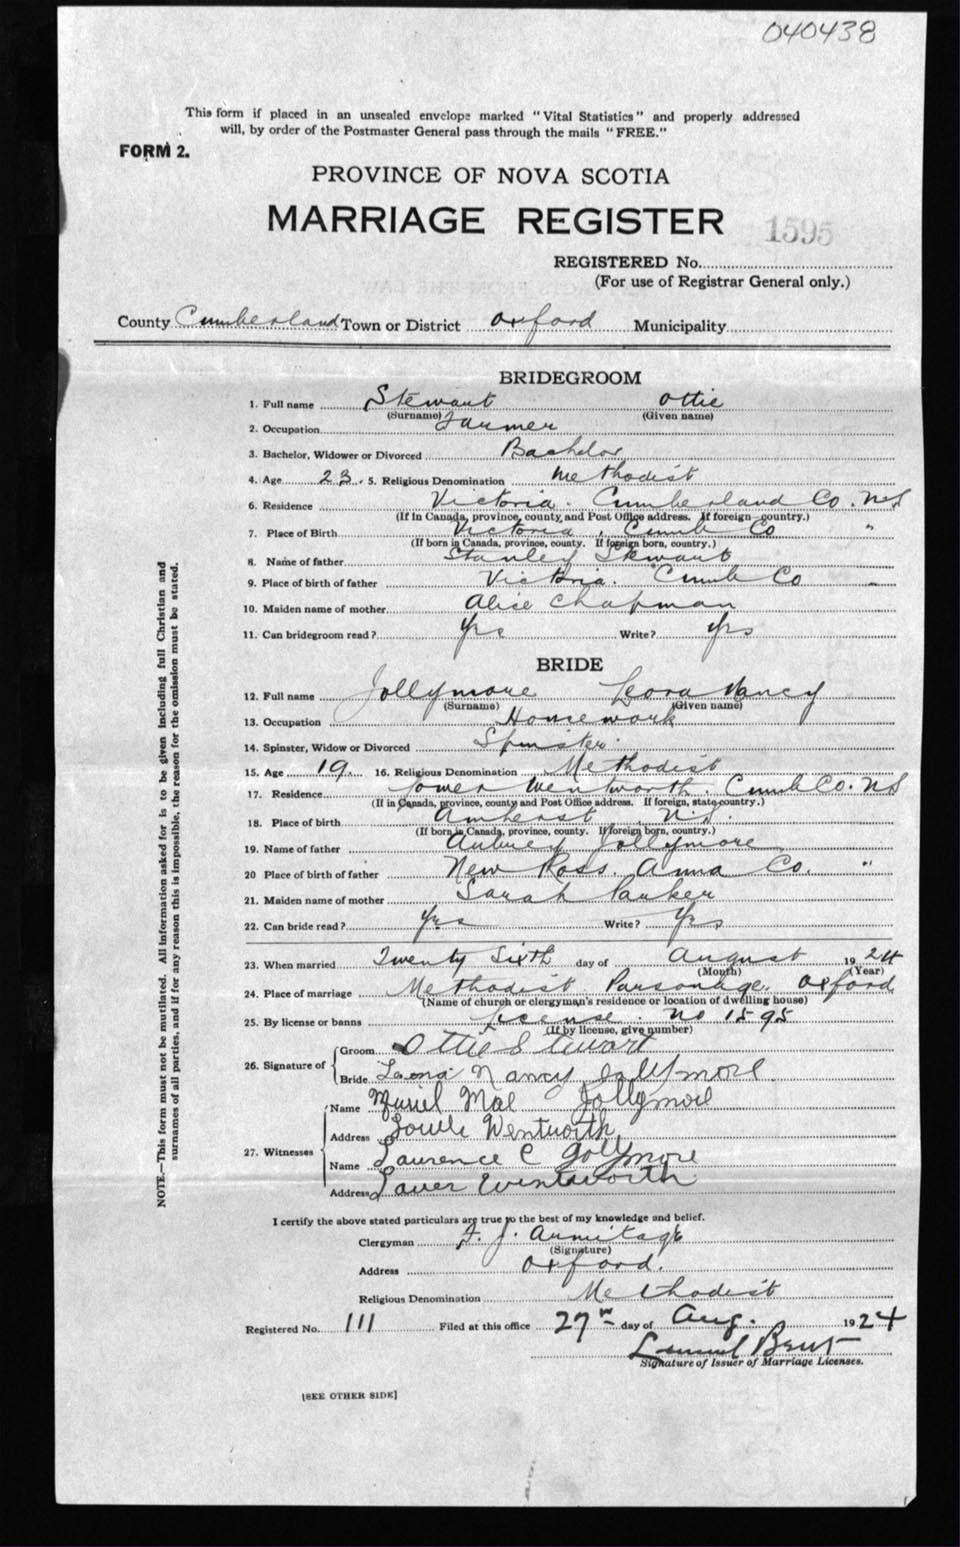 040438
This form if placed in an unsealed envelope marked "Vital Statistics" and properly addressed
will, by order of the Postmaster General pass through the mails "FREE."
FORM 2.
PROVINCE OF NOVA SCOTIA
MARRIAGE REGISTER 1595
REGISTERED No.
(For use of Registrar General only.)
County Cumberland Town or District Oxford Municipality
BRIDEGROOM
1. Full name Stewart Ottie
(Surname) (Given name)
2. Occupation Farmer
3. Bachelor, Widower or Divorced Bachelor
4. Age 23. 5. Religious Denomination Methodist
6. Residence Victoria. Cumberland Co. NS
(If in Canada, province, county and Post Office address. If foreign—country.)
7. Place of Birth Victoria. Cumb Co "
(If born in Canada, province, county. If foreign born, country.)
8. Name of father Stanley Stewart
9. Place of birth of father Victoria. Cumb Co "
10. Maiden name of mother Alice Chapman
11. Can bridegroom read? Yrs Write? Yrs
BRIDE
12. Full name Jollymore Leora Nancy
(Surname) (Given name)
13. Occupation Homework
14. Spinster, Widow or Divorced Spinster.
15. Age 19. 16. Religious Denomination Methodist
17. Residence Lower Wentworth. Cumb Co. NS
(If in Canada, province, county and Post Office address. If foreign, state country.)
18. Place of birth Amherst N.S.
(If born in Canada, province, county. If foreign born, country.)
19. Name of father Aubrey Jollymore
20 Place of birth of father New Ross. Anna Co. "
21. Maiden name of mother Sarah Parker
22. Can bride read? Yrs Write? Yrs
23. When married Twenty Sixth day of August 1924
(Month) (Year)
24. Place of marriage Methodist Parsonage. Oxford
(Name of church or clergyman's residence or location of dwelling house)
25. By license or banns License. No 1595
(If by license, give number)
26. Signature of
Groom Ottie Stewart
Bride Leora Nancy Jollymore
27. Witnesses
Name Muriel Mae Jollymore
Address Lower Wentworth
Name Laurence C Jollymore
Address Lower Wentworth
I certify the above stated particulars are true to the best of my knowledge and belief.
Clergyman F. J. Armitage
(Signature)
Address Oxford.
Religious Denomination Methodist
Registered No. 111 Filed at this office 27th day of Aug. 1924
Lemuel Bent
Signature of Issuer of Marriage Licenses.
[SEE OTHER SIDE]
NOTE.—This form must not be mutilated. All information asked for is to be given including full Christian and
surnames of all parties, and if for any reason this is impossible, the reason for the omission must be stated.